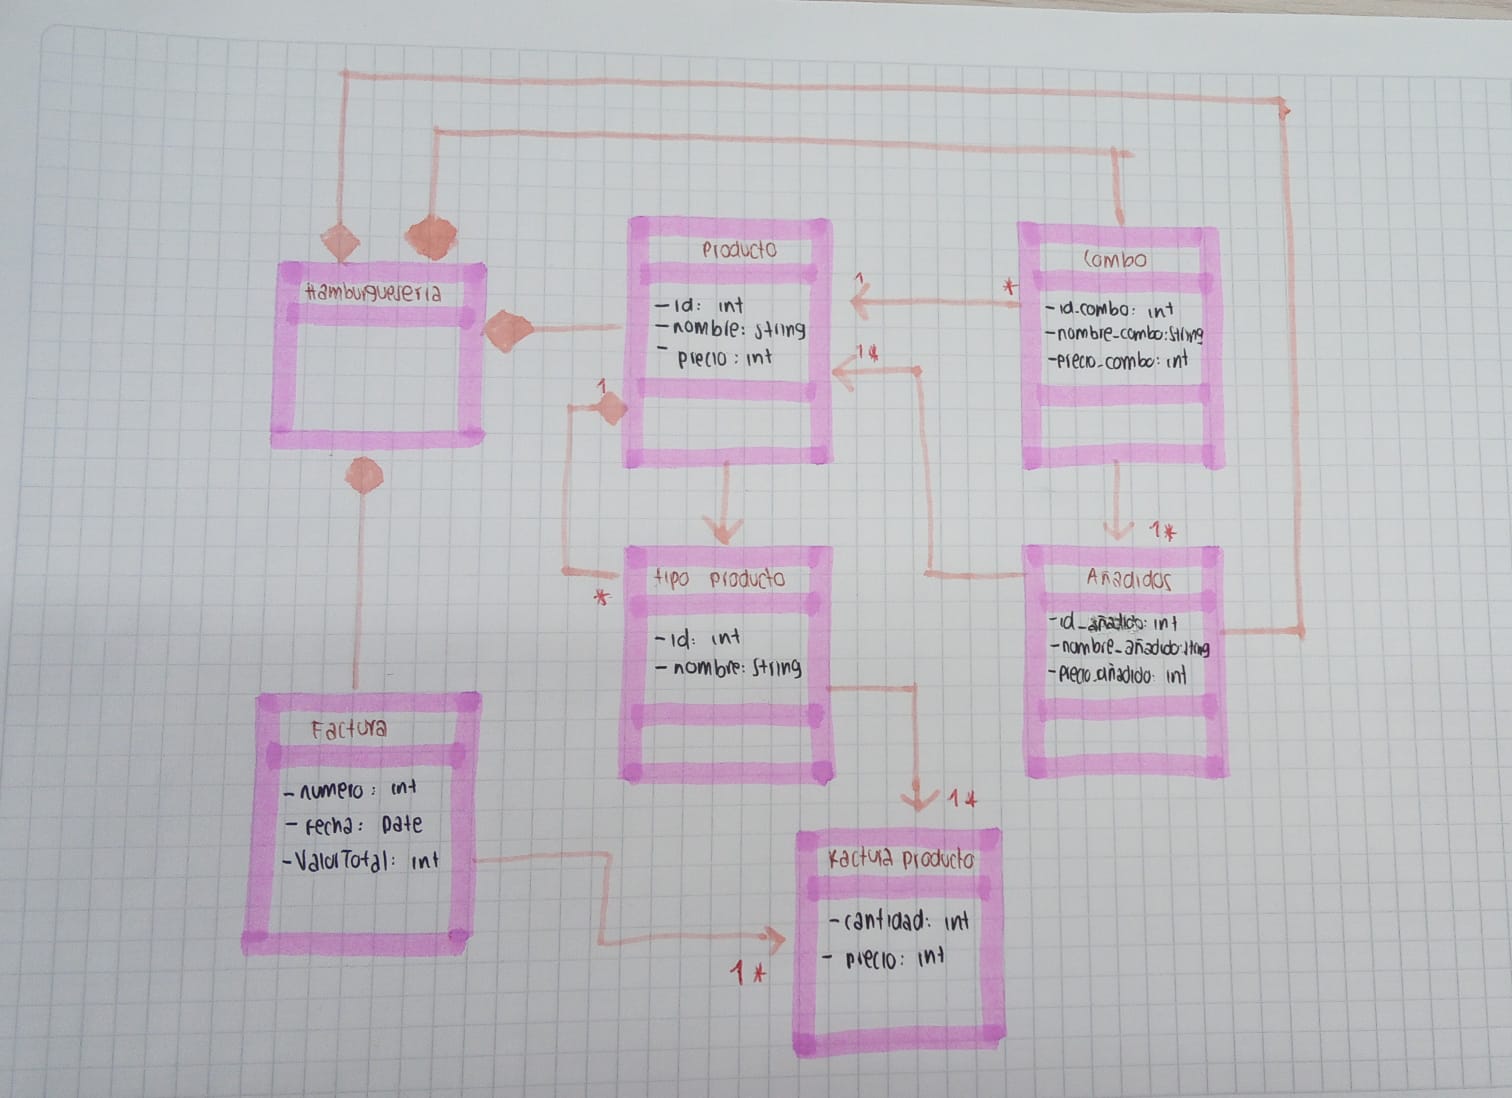 Hamburgueseria
1
*
1*
1
*
1*
1*
1*
Producto
- id: int
- nombre: string
- precio: int
Combo
- id_combo: int
- nombre_combo: String
- precio_combo: int
tipo producto
- id: int
- nombre: String
Añadidos
- id_añadido: int
- nombre_añadido: String
- precio_añadido: int
Factura
- numero: int
- Fecha: Date
- ValorTotal: int
Factura producto
- cantidad: int
- precio: int